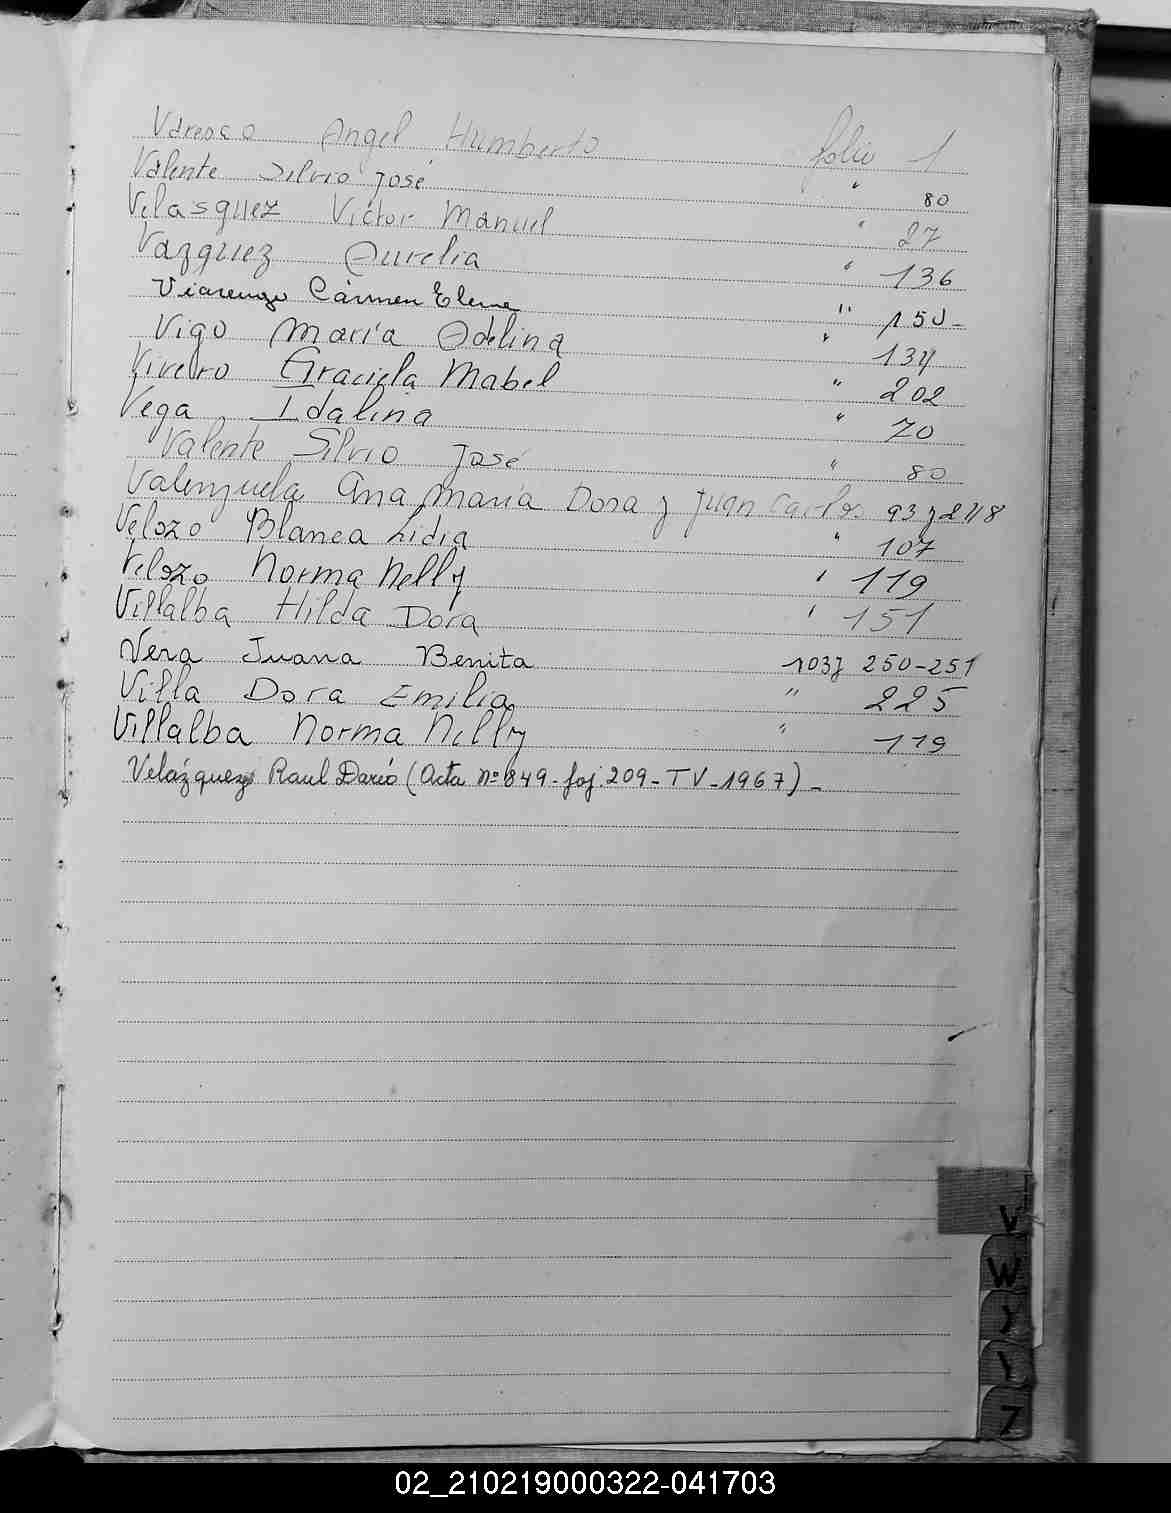 Angel Humberto folio 1
Valente Silvio José " 80
Velasquez Victor Manuel " 27
Vazquez Aurelia " 136
Viarengo Cármen Elena " 150-
Vigo María Adelina " 134
Viveiro Graciela Mabel " 202
Vega Idalina " 70
Valente Silvio José " 80
Valenzuela Ana María Dora y Juan Carlos 93 y 248
Velozo Blanca Lidia " 107
Velozo Norma Nelly " 119
Villalba Hilda Dora " 151
Vera Juana Benita 103y 250-251
Villa Dora Emilia " 225
Villalba Norma Nelly " 119
Velázquez Raul Darío (Acta nº 849-foj. 209-TV-1967)-
V
W
Z
02_210219000322-041703